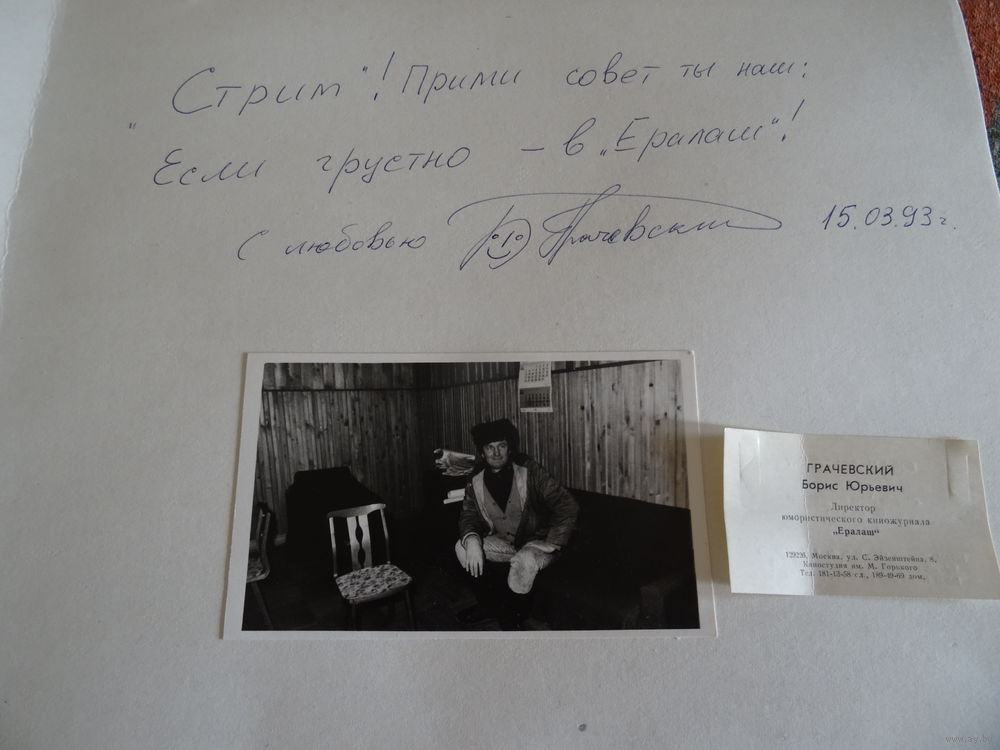 „Стрим“! Прими совет ты наш:
Если грустно – в „Ералаш“!
С любовью Грачевский 15.03.93г.
ГРАЧЕВСКИЙ
Борис Юрьевич
Директор
юмористического киножурнала
„Ералаш“
129226, Москва, ул. С. Эйзенштейна, 8,
Киностудия им. М. Горького
Тел. 181-13-58 сл., 189-49-69 дом.
www.ay.by